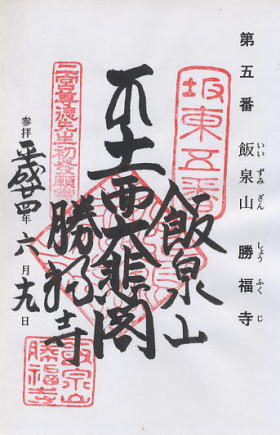 第五番 飯泉山 勝福寺
いい ずみ ざん しょう ふく じ
坂東五番
飯泉山
十一面大悲閣
勝福寺
二宮尊徳先生初発願
参拝 平成廿四年六月十九日
飯泉山
勝福寺